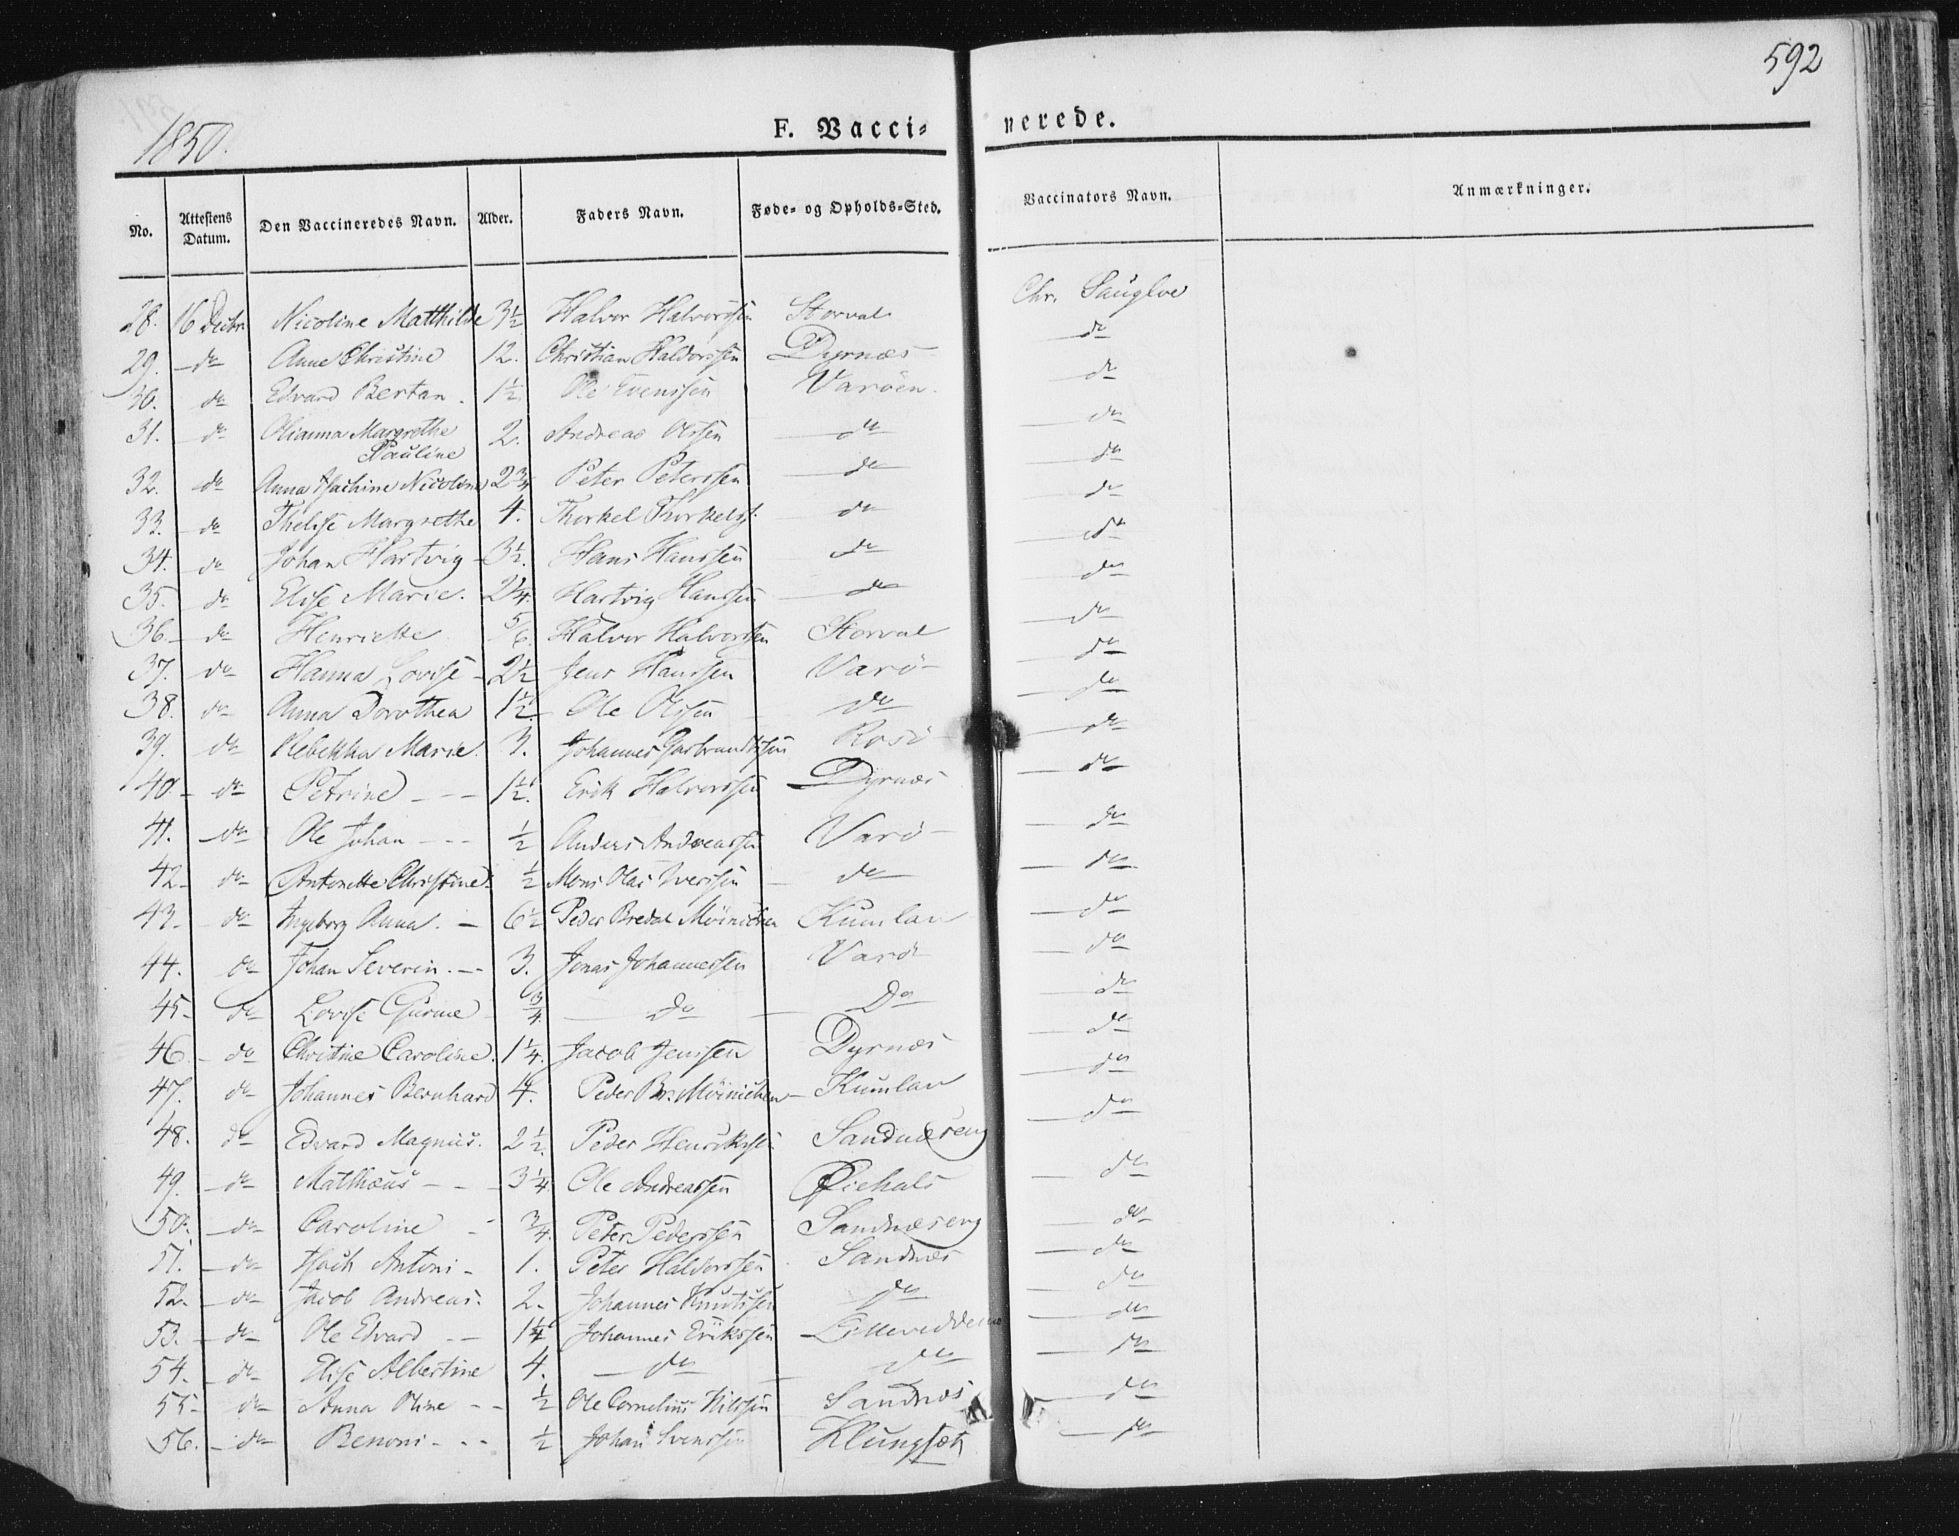 592
1850.
F. Vacci- nerede.
No. Attestens Datum. Den Vaccineredes Navn. Alder. Faders Navn. Føde- og Opholds-Sted. Vaccinators Navn. Anmærkninger.
28. 16 Decbr Nicoline Matthilde 3½ Halvor Halvorssen Storval Chr. Saugloe
29. do Anne Christine 12. Christian Haldorssen Dyrnæs do
30. do Edvard Bertan. 1½ Ole Evenssen Varöen. do
31. do Olianna Margrethe 2. Andreas Olssen do do
Pauline
32. do Anna Nicoline 2¾ Peter Peterssen do do
33. do Margrethe 4. Thorkel Thorkelss. do do
34. do Johan Hartvig 3½. Hans Hanssen do do
35. do Elise Marie. 2¼. Hartvig Hanssen do do
36. do Henriette 5/6. Halvor Halvorssen Storval do
37. do Hanna Lovise 2½ Jens Hanssen Varö do
38. do Anna Dorothea 1½. Ole Olssen do do
39. do Rebekka Marie. 3. Johannes Rosö do
40. do Petrine 1½. Erik Halvorssen Dyrnæs do
41. do Ole Johan ½ Anders Andreassen Varö do
42. do Antonette Christine ½ Mons Olai Iverssen do do
43. do Ingeborg Anna. 6½ Peder Bredal Möinichen Kumlan do
44. do Johan Severin. 3. Jonas Johannessen Varö do
45 do Lovise Gurine ¾. do Do do
46. do Christine Caroline. 1¼. Jacob Jenssen Dyrnæs do
47. do Johannes Bernhard 4. Peder Br. Möinichen Kumlan do
48. do Edvard Magnus. 2½ Peder Henrikssen Sandnæseng do
49. do Mathæus 3¼ Ole Andreassen do
50. do Caroline ¾. Peter Pederssen Sandnæseng do
51. do Antoni 1. Peter Haldorssen Sandnæs do
52. do Jacob Andreas. 2. Johannes Knutssen do do
53. do Ole Edvard 1¼ Johannes Erikssen do
54. do Elise Albertine 4. do do do
55 do Anna Oline ½ Ole Cornelius Nilssen Sandnæs do
56. do Benoni ½ Johan Svenssen Klungsæt do